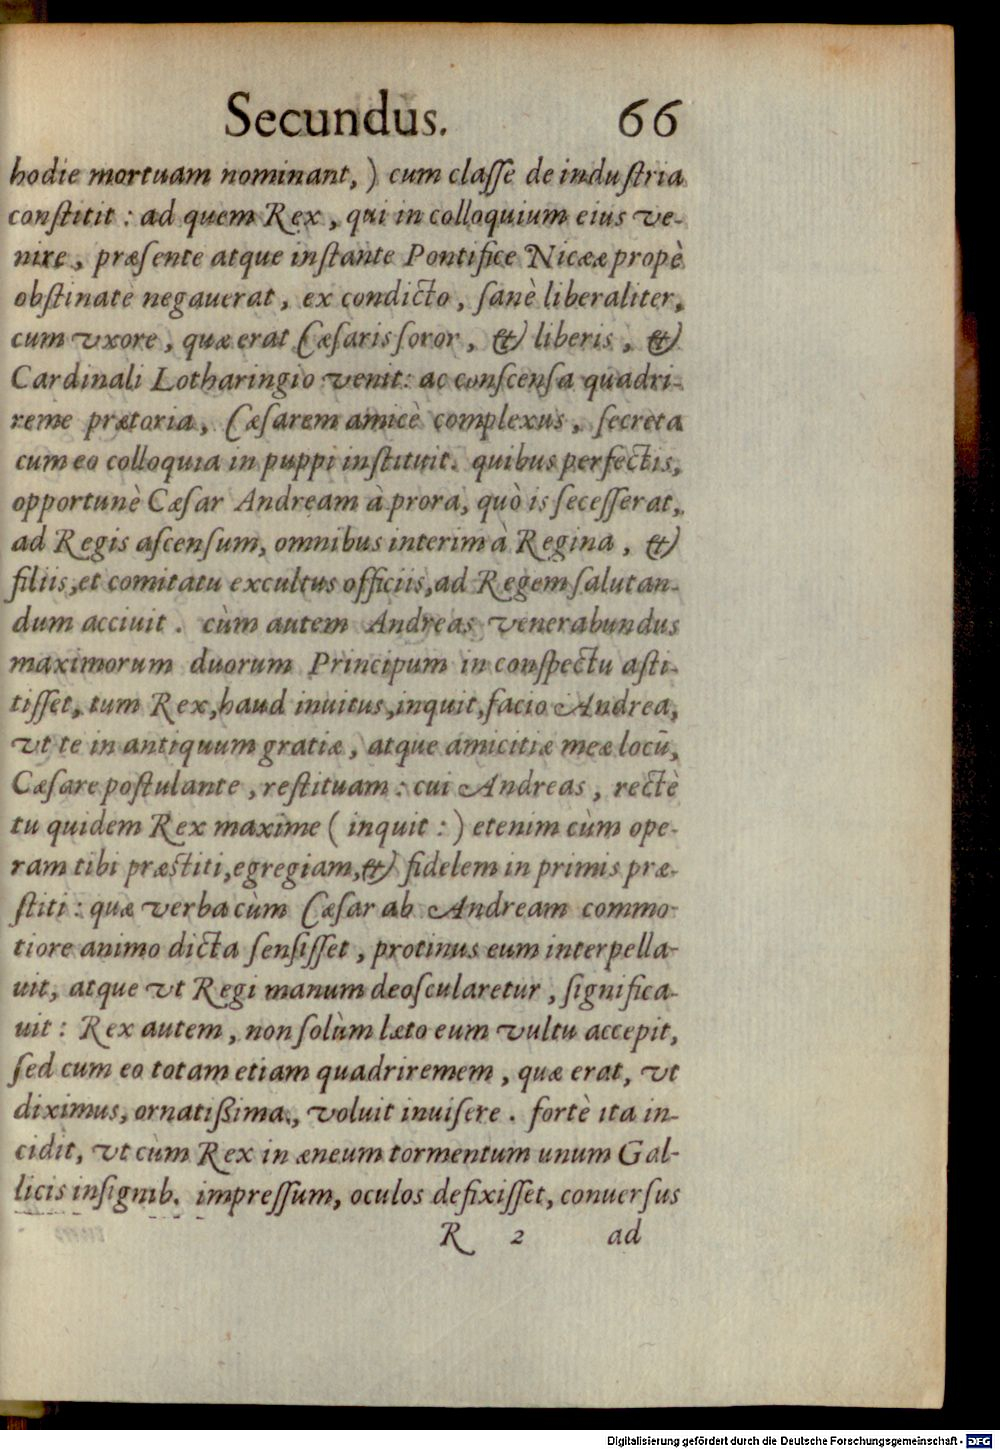 Secundus. 66
hodie mortuam nominant, ) cum claſſe de induſtria
conſtitit : ad quem Rex, qui in colloquium eius ve-
nire, præſente atque inſtante Pontifice Nicææ propè
obſtinatè negauerat, ex condicto, ſanè liberaliter,
cum vxore, quæ erat Cæſaris ſoror, & liberis, &
Cardinali Lotharingio venit: ac conſcenſa quadri-
reme prætoria, Cæſarem amicè complexus, ſecreta
cum eo colloquia in puppi inſtituit. quibus perfectis,
opportunè Cæſar Andream à prora, quò is ſeceſſerat,
ad Regis aſcenſum, omnibus interim à Regina, &
filiis, et comitatu excultus officiis, ad Regem ſalutan-
dum acciuit. cùm autem Andreas venerabundus
maximorum duorum Principum in conſpectu aſti-
tiſſet, tum Rex, haud inuitus, inquit, facio Andrea,
vt te in antiquum gratiæ, atque amicitiæ meæ locū,
Cæſare poſtulante, reſtituam : cui Andreas, rectè
tu quidem Rex maxime ( inquit : ) etenim cùm ope-
ram tibi præstiti, egregiam, & fidelem in primis præ-
ſtiti : quæ verba cùm Cæſar ab Andream commo-
tiore animo dicta ſenſiſſet, protinus eum interpella-
uit, atque vt Regi manum deoſcularetur, ſignifica-
uit : Rex autem, non ſolùm læto eum vultu accepit,
ſed cum eo totam etiam quadriremem, quæ erat, vt
diximus, ornatißima, voluit inuiſere. fortè ita in-
cidit, vt cùm Rex in æneum tormentum unum Gal-
licis inſignib. impreſſum, oculos defixiſſet, conuerſus
R 2 ad
Digitalisierung gefördert durch die Deutsche Forschungsgemeinschaft - DFG